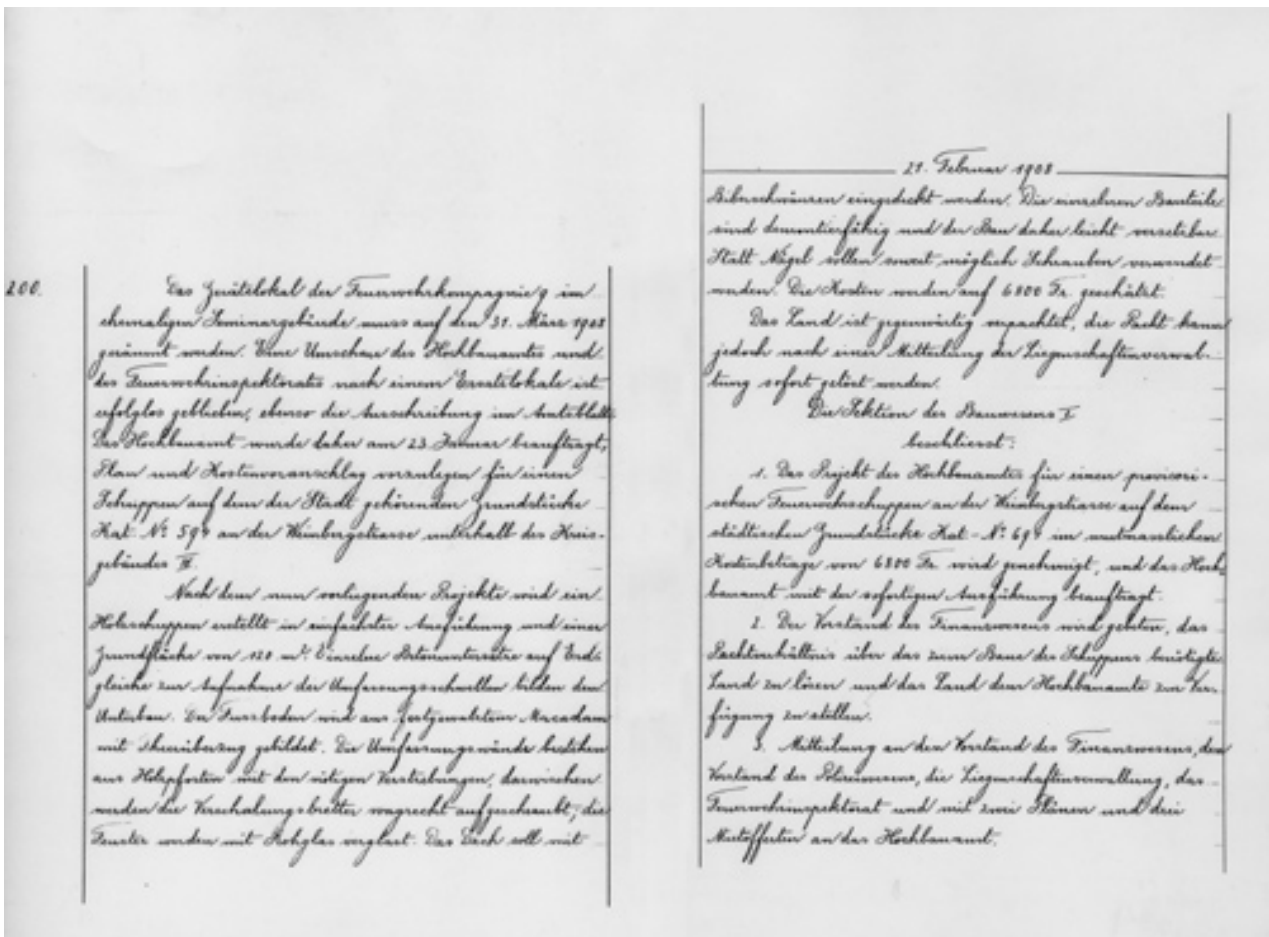 200.
Das Gerätelokal der Feuerwehrkompagnie 9 im
ehemaligen Seminargebäude muss auf den 31. März 1908
geräumt werden. Eine Umschau des Hochbauamtes und
des Feuerwehrinspektorates nach einem Ersatzlokale ist
erfolglos geblieben, ebenso die Ausschreibung im Amtsblatt.
Das Hochbauamt wurde daher am 23. Januar beauftragt,
Plan und Kostenvoranschlag vorzulegen für einen
Schuppen auf dem der Stadt gehörenden Grundstücke
Kat. No. 594 an der Weinbergstrasse unterhalb des Kreis-
gebäudes
Nach dem nun vorliegenden Projekte wird ein
Holzschuppen erstellt in einfachster Ausführung und einer
Grundfläche von 120 m². Einzelne Betonuntersätze auf Erd-
gleiche zur Aufnahme der Umfassungsschwellen bilden den
Unterbau. Der Fussboden wird aus festgewalztem Macadam
mit Teerüberzug gebildet. Die Umfassungswände bestehen
aus Holzpfosten mit den nötigen Verstrebungen, dazwischen
werden die Verschalungsbretter wagrecht aufgeschraubt; die
Fenster werden mit Rohglas verglast. Das Dach soll mit
21. Februar 1908
Biberschwänzen eingedeckt werden. Die einzelnen Bauteile
sind demontierfähig und der Bau daher leicht versetzbar.
Statt Nägel sollen soweit möglich Schrauben verwendet
werden. Die Kosten werden auf 6800 Fr. geschätzt.
Das Land ist gegenwärtig verpachtet, die Pacht kann
jedoch nach einer Mitteilung der Liegenschaftenverwal-
tung sofort gelöst werden.
Die Sektion des Bauwesens I
beschliesst:
1. Das Projekt des Hochbauamtes für einen provisori-
schen Feuerwehrschuppen an der Weinbergstrasse auf dem
städtischen Grundstücke Kat.-No. 694 im mutmasslichen
Kostenbetrage von 6800 Fr. wird genehmigt, und das Hoch-
bauamt mit der sofortigen Ausführung beauftragt.
2. Der Vorstand des Finanzwesens wird gebeten, das
Pachtverhältnis über das zum Baue des Schuppens benötigte
Land zu lösen und das Land dem Hochbauamte zur Ver-
fügung zu stellen.
3. Mitteilung an den Vorstand des Finanzwesens, den
Vorstand des Polizeiwesens, die Liegenschaftenverwaltung, das
Feuerwehrinspektorat und mit zwei Plänen und drei
an das Hochbauamt.